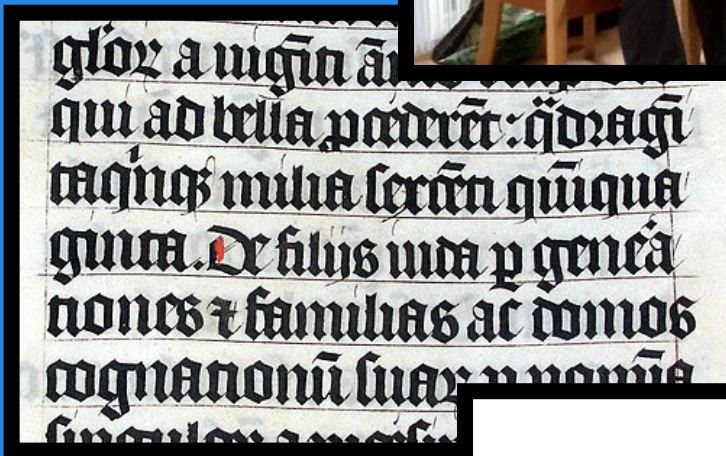 gl'oꝝ a uigīti ā
qui ad bella ꝓcederēt : q̈dragī
taq'nqꝫ milia sexcēti quīqua
ginta. De filijs iuda ꝑ gen̄e'a
tiones ⁊ familias ac domos
cognationū suaꝝ